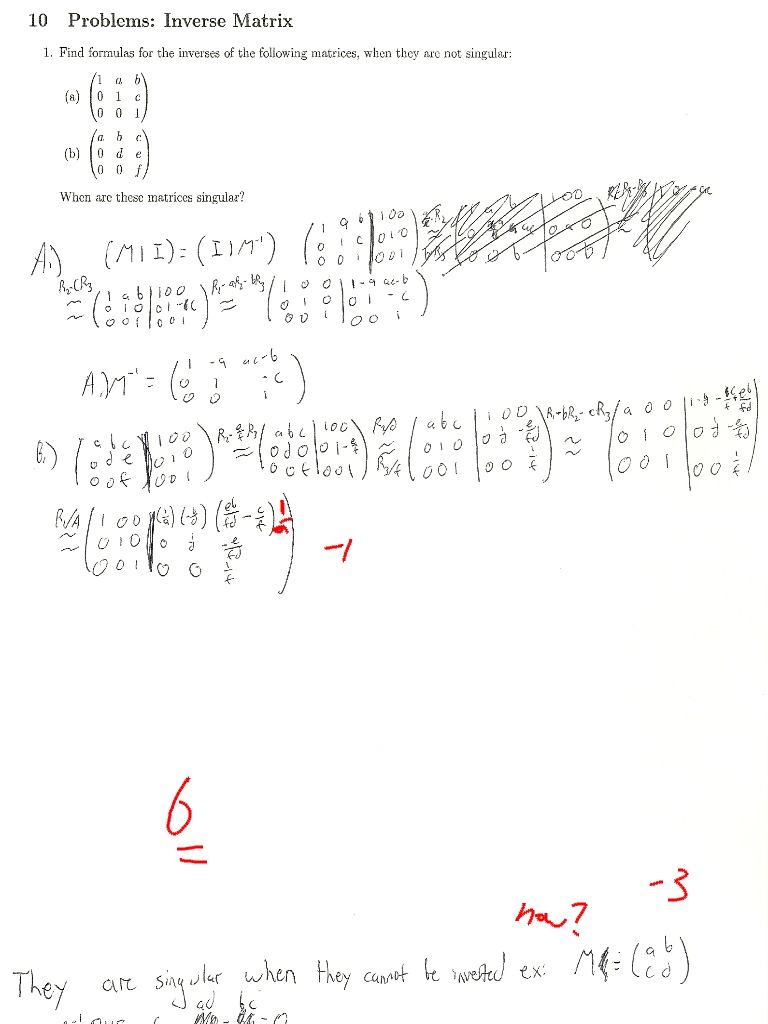 10 Problems: Inverse Matrix
1. Find formulas for the inverses of the following matrices, when they are not singular:
(a) (1 a b
0 1 c
0 0 1)
(b) (a b c
0 d e
0 0 f)
When are these matrices singular?
A.) (M | I) = (I | M⁻¹) (1 a b | 1 0 0
0 1 c | 0 1 0
0 0 1 | 0 0 1)
R₂-CR₃ ≈ (1 a b | 1 0 0
0 1 0 | 0 1 -c
0 0 1 | 0 0 1)
R₁-aR₂-bR₃ ≈ (1 0 0 | 1 -a ac-b
0 1 0 | 0 1 -c
0 0 1 | 0 0 1)
A.) M⁻¹ = (1 -a ac-b
0 1 -c
0 0 1)
B.) (a b c | 1 0 0
0 d e | 0 1 0
0 0 f | 0 0 1)
≈ (a b c | 1 0 0
0 d 0 | 0 1 -e/f
0 0 f | 0 0 1)
R₂/D ≈ R₃/f (a b c | 1 0 0
0 1 0 | 0 1/d -e/fd
0 0 1 | 0 0 1/f)
R₁-bR₂-cR₃ ≈ (a 0 0 | 1 -b/d -c/f+eb/fd
0 1 0 | 0 1/d -e/fd
0 0 1 | 0 0 1/f)
R₁/A ≈ (1 0 0 | (1/a) (-b/d) (eb/fd - c/f) 1/a
0 1 0 | 0 1/d -e/fd
0 0 1 | 0 0 1/f)
-1
6
-3
how?
They are singular when they cannot be inverted ex: M = (a b
c d)
ad bc